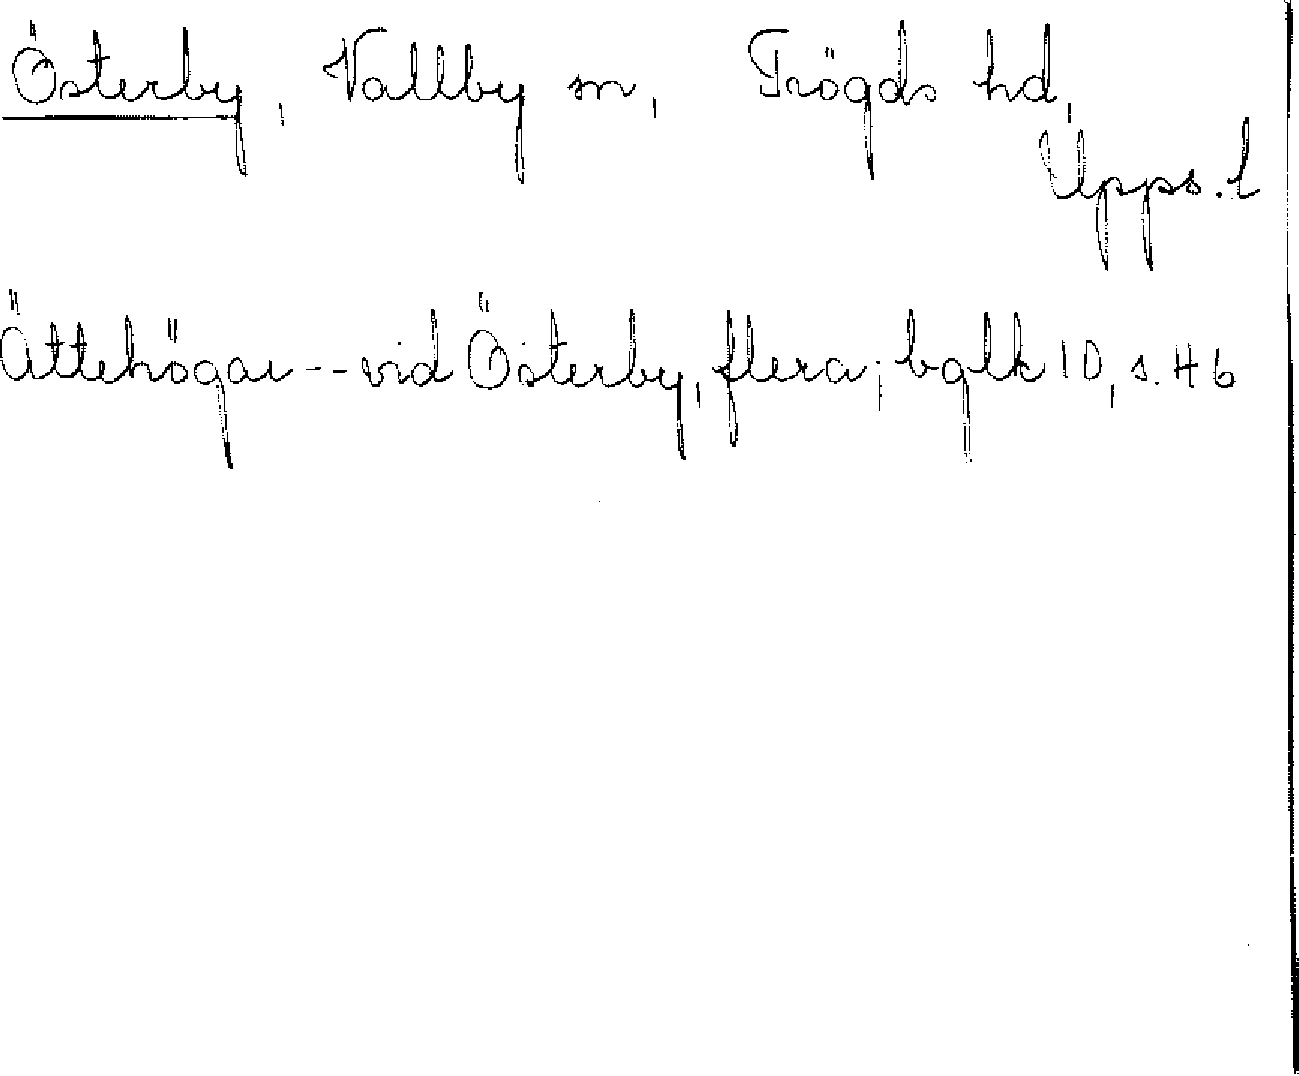 Österby, Vallby sn, Trögds hd,
Upps. l
Ättehögar -- vid Österby, flera; bglk 10, s. 46